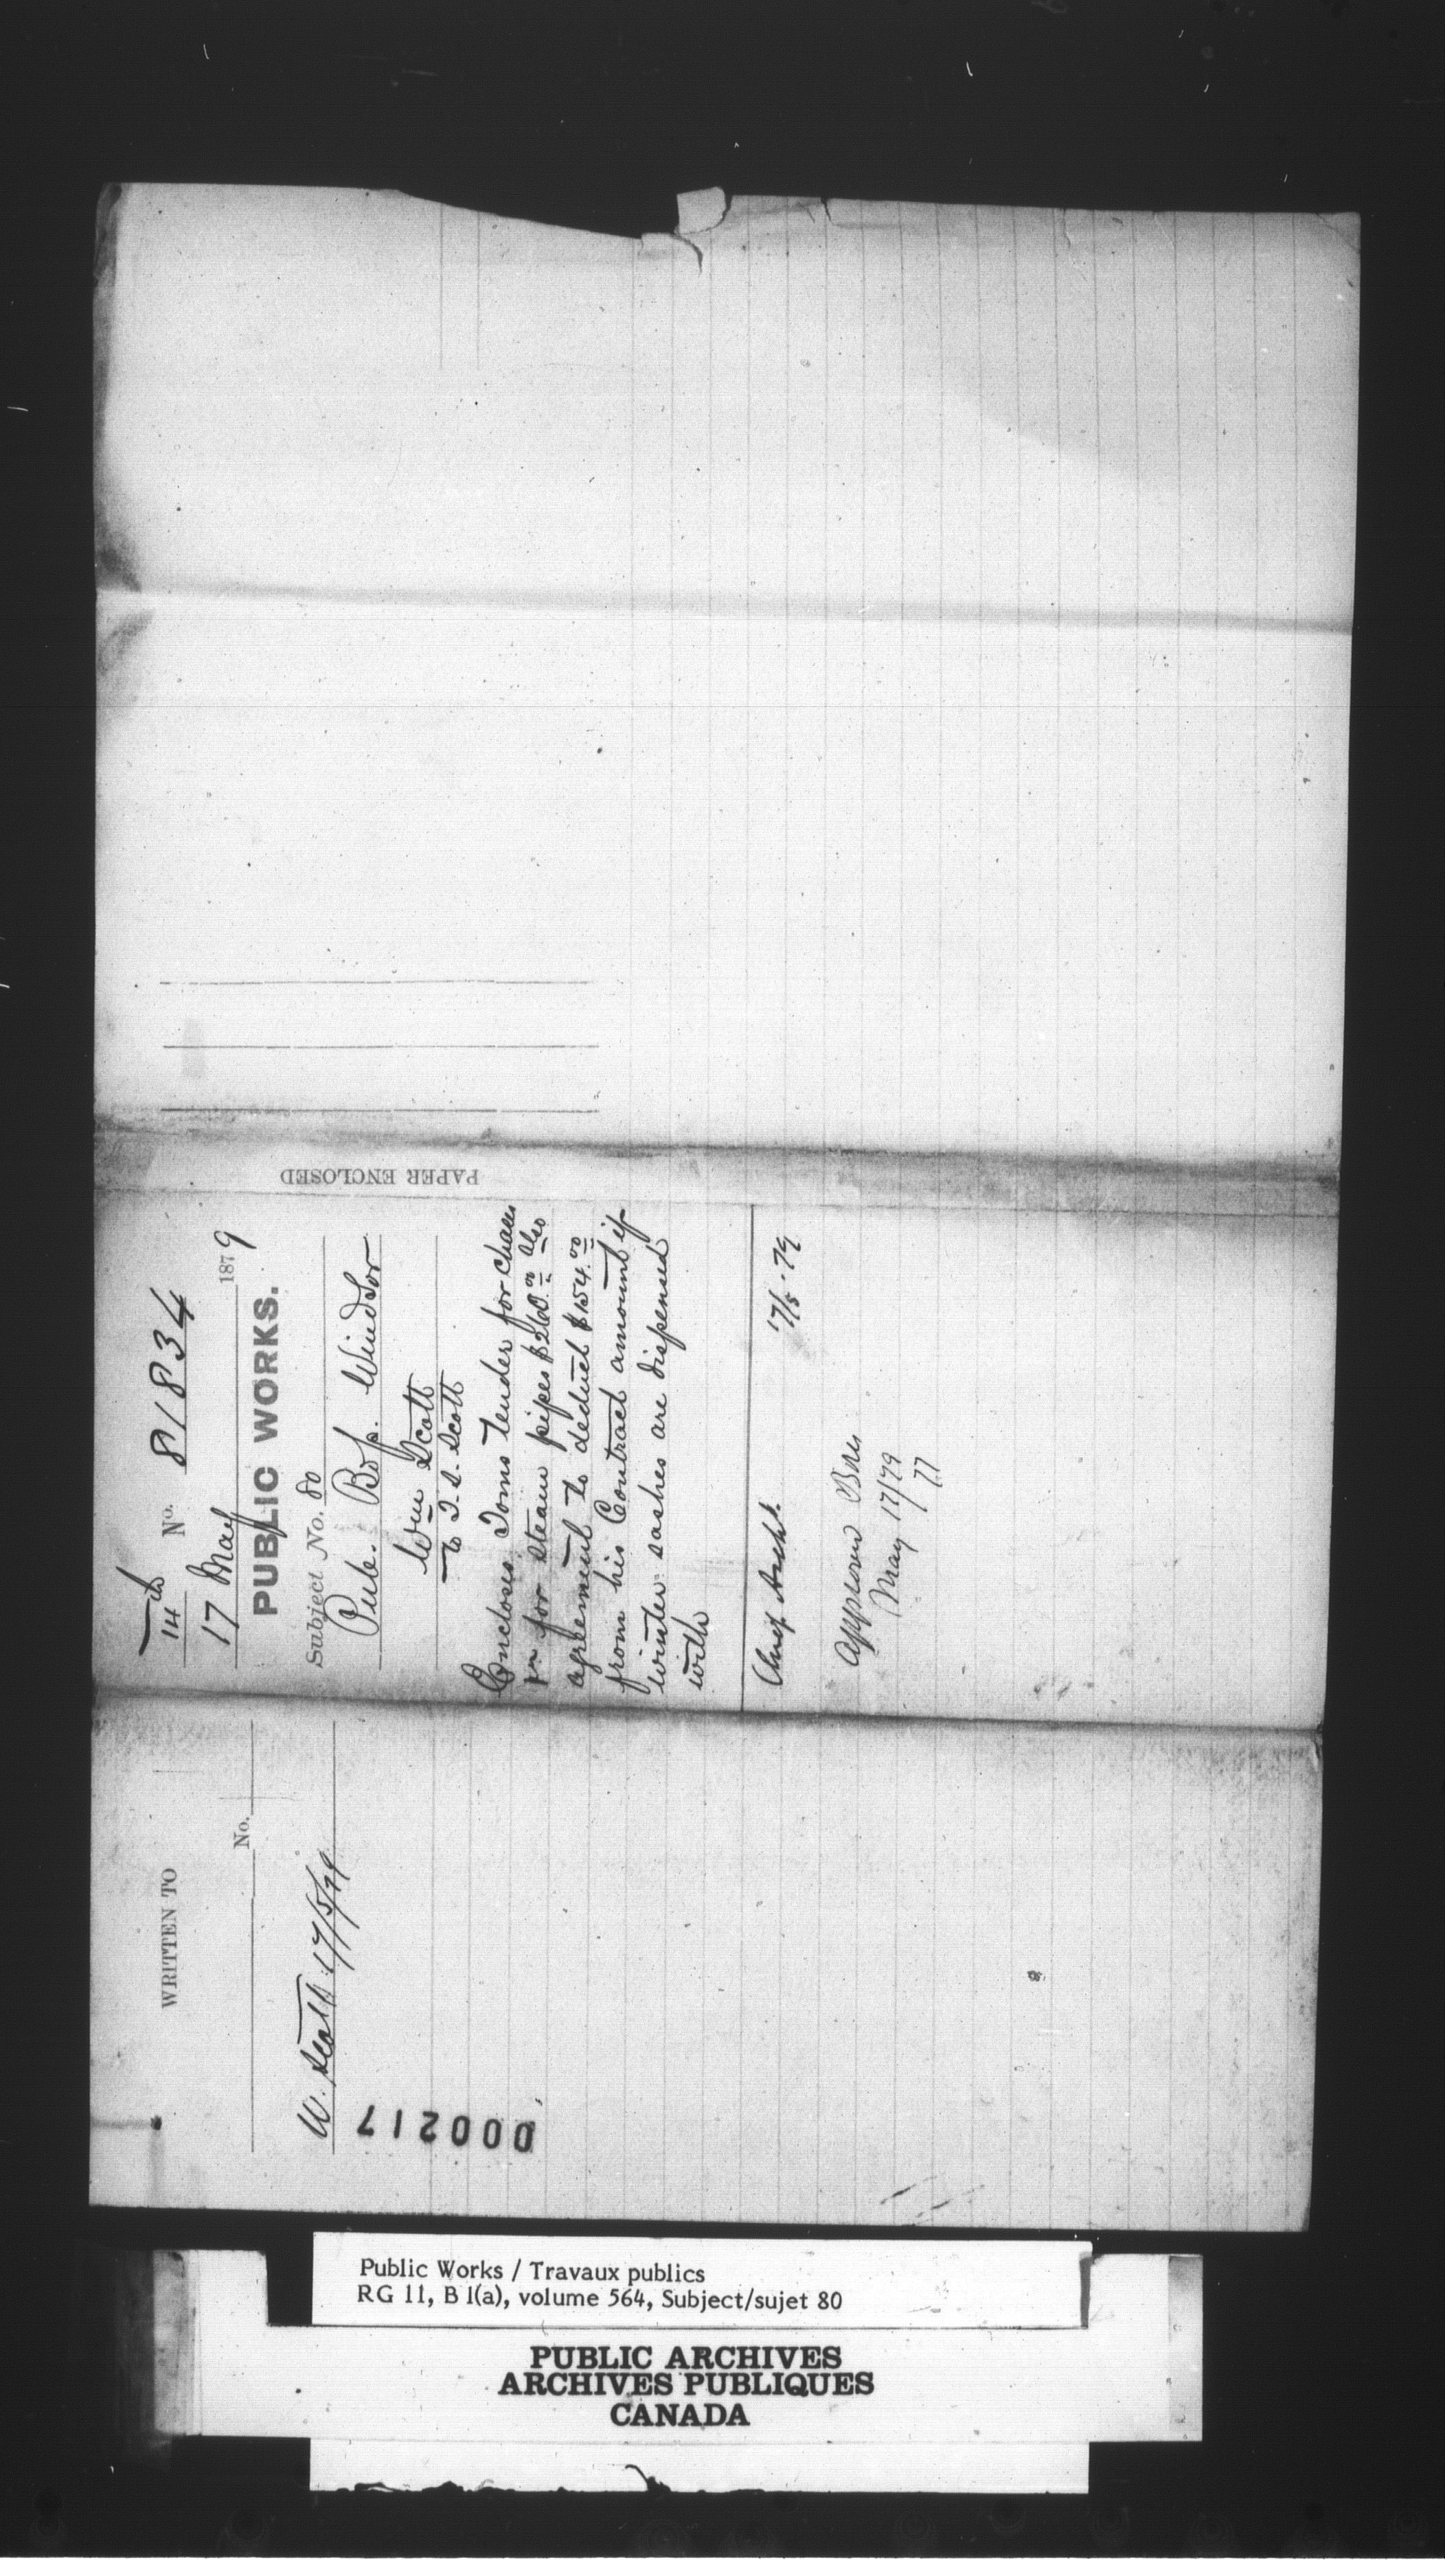 14th No. 81834
17 May 1879
PUBLIC WORKS.
Subject No. 80
Pub. Bgs. Windsor
Wm Scott
to T. S. Scott
Encloses Toms tender for chases
in for steam pipes $260.00 also
agreement to deduct $154.00
from his Contract amount if
winter sashes are dispensed
with
Chief Archt. 17/5.79
Approved
May 17/79
PAPER ENCLOSED
WRITTEN TO
No.
W. Scott 17/5/79
000217
Public Works / Travaux publics
RG 11, B 1(a), volume 564, Subject/sujet 80
PUBLIC ARCHIVES
ARCHIVES PUBLIQUES
CANADA